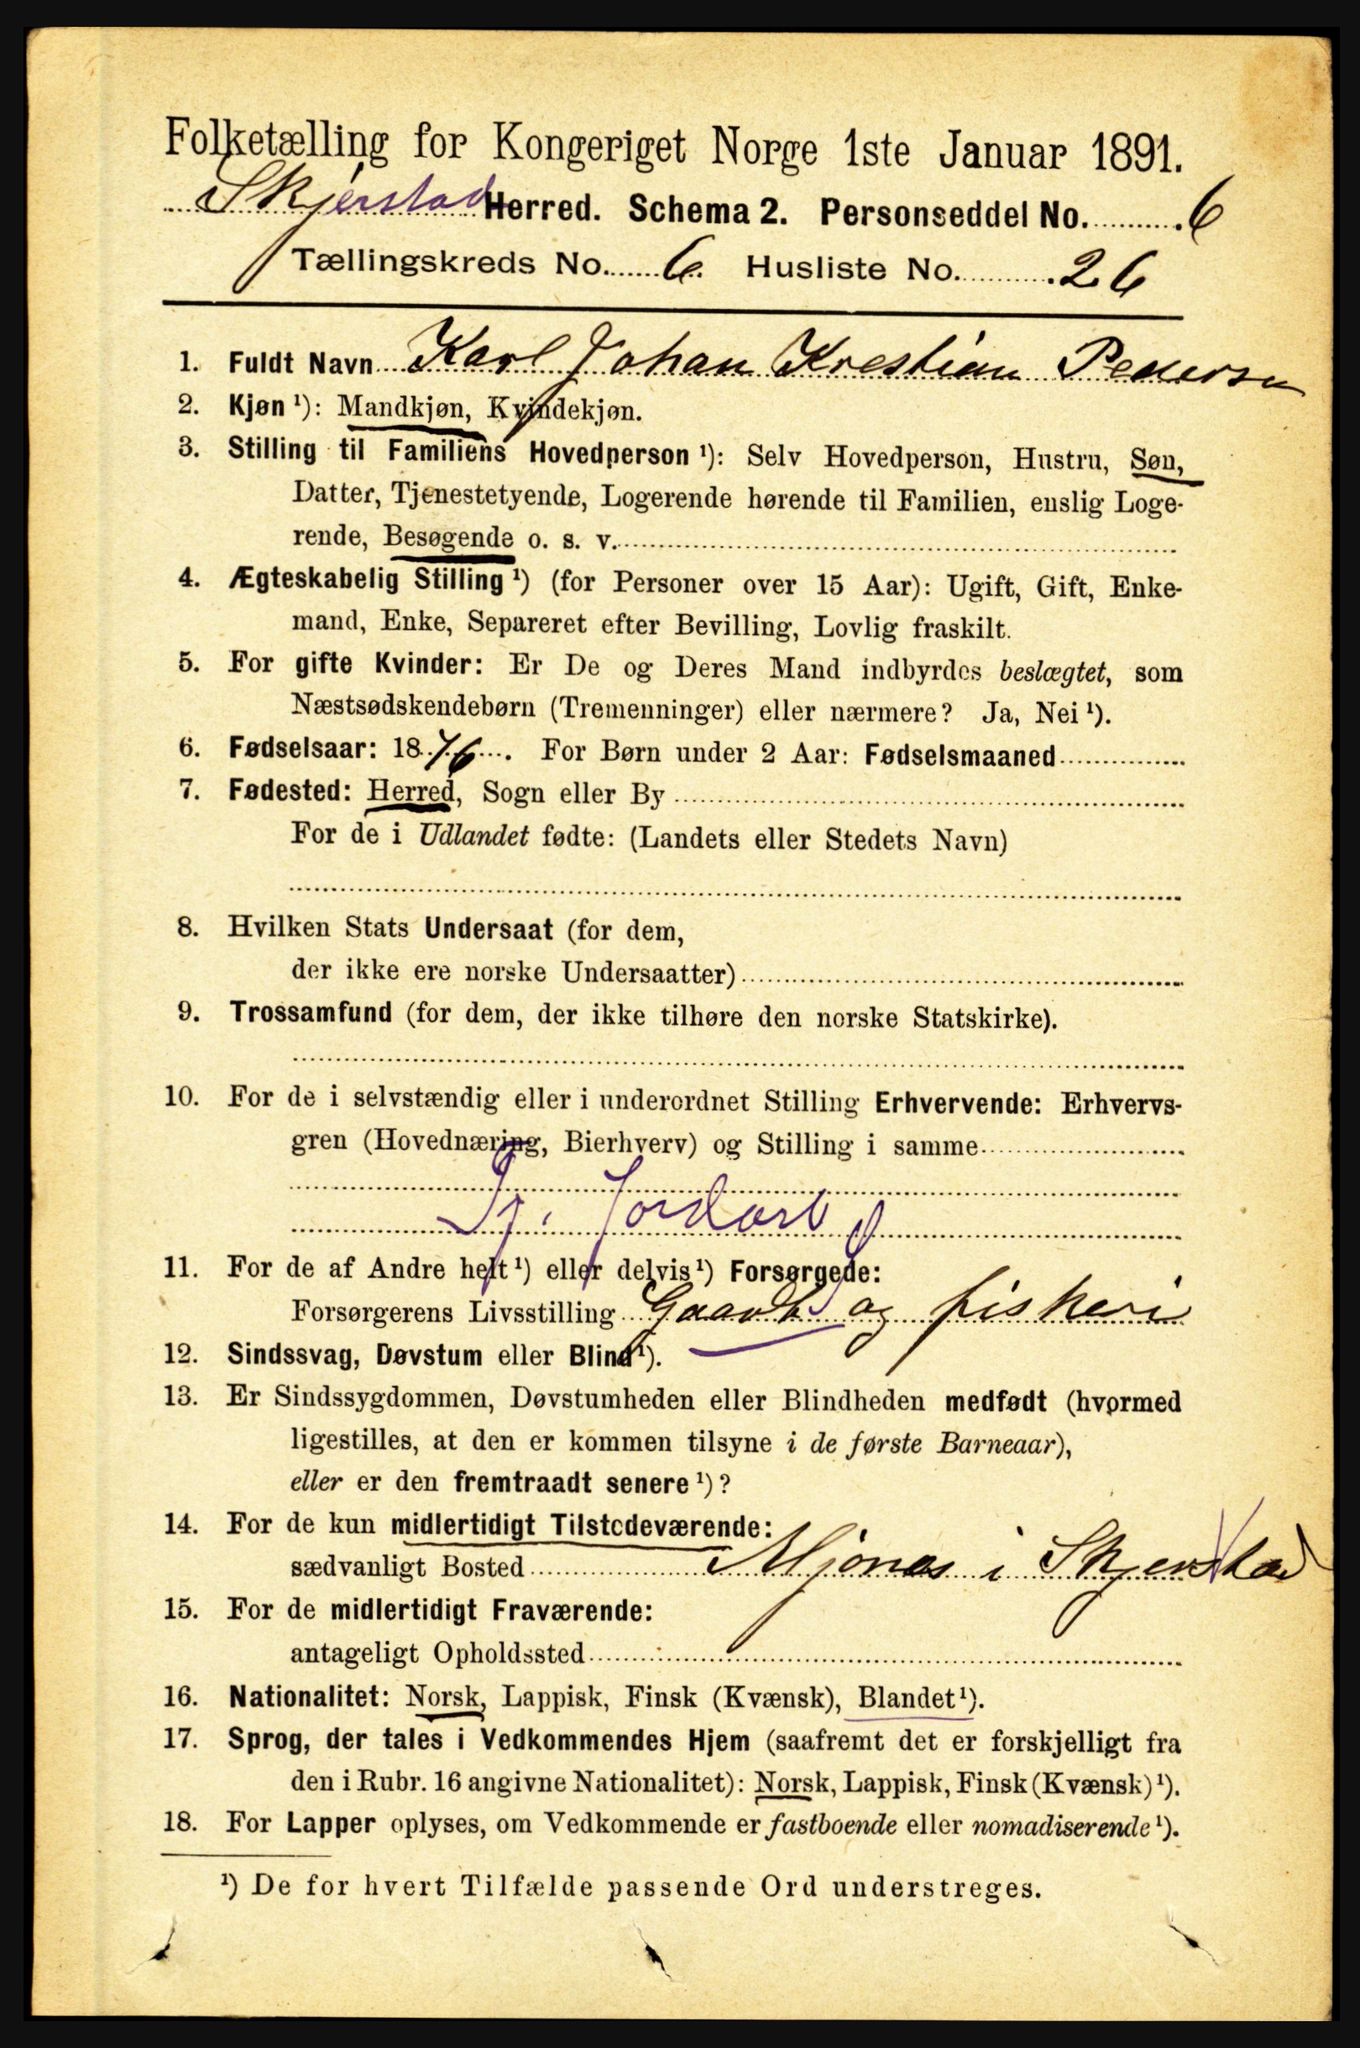 Folketælling for Kongeriget Norge 1ste Januar 1891.
Skjerstad Herred. Schema 2. Personseddel No. 6
Tællingskreds No. 6. Husliste No. 26
1. Fuldt Navn Karl Johan Krestian Pedersen
2. Kjøn ¹): Mandkjøn, Kvindekjøn.
3. Stilling til Familiens Hovedperson ¹): Selv Hovedperson, Hustru, Søn,
Datter, Tjenestetyende, Logerende hørende til Familien, enslig Loge-
rende, Besøgende o. s. v.
4. Ægteskabelig Stilling ¹) (for Personer over 15 Aar): Ugift, Gift, Enke-
mand, Enke, Separeret efter Bevilling, Lovlig fraskilt.
5. For gifte Kvinder: Er De og Deres Mand indbyrdes beslægtet, som
Næstsødskendebørn (Tremenninger) eller nærmere? Ja, Nei ¹).
6. Fødselsaar: 1876. For Børn under 2 Aar: Fødselsmaaned
7. Fødested: Herred, Sogn eller By
For de i Udlandet fødte: (Landets eller Stedets Navn)
8. Hvilken Stats Undersaat (for dem,
der ikke ere norske Undersaatter)
9. Trossamfund (for dem, der ikke tilhøre den norske Statskirke).
10. For de i selvstændig eller i underordnet Stilling Erhvervende: Erhvervs-
gren (Hovednæring, Bierhverv) og Stilling i samme
11. For de af Andre helt ¹) eller delvis ¹) Forsørgede:
Forsørgerens Livsstilling Gaardb og fiskeri
12. Sindssvag, Døvstum eller Blind ¹).
13. Er Sindssygdommen, Døvstumheden eller Blindheden medfødt (hvormed
ligestilles, at den er kommen tilsyne i de første Barneaar),
eller er den fremtraadt senere ¹)?
14. For de kun midlertidigt Tilstedeværende:
sædvanligt Bosted Mjønes i Skjerstad
15. For de midlertidigt Fraværende:
antageligt Opholdssted
16. Nationalitet: Norsk, Lappisk, Finsk (Kvænsk), Blandet ¹).
17. Sprog, der tales i Vedkommendes Hjem (saafremt det er forskjelligt fra
den i Rubr. 16 angivne Nationalitet): Norsk, Lappisk, Finsk (Kvænsk) ¹).
18. For Lapper oplyses, om Vedkommende er fastboende eller nomadiserende ¹).
¹) De for hvert Tilfælde passende Ord understreges.